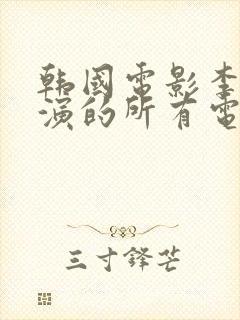 韩國電影李
演的所有電
三寸鋒芒